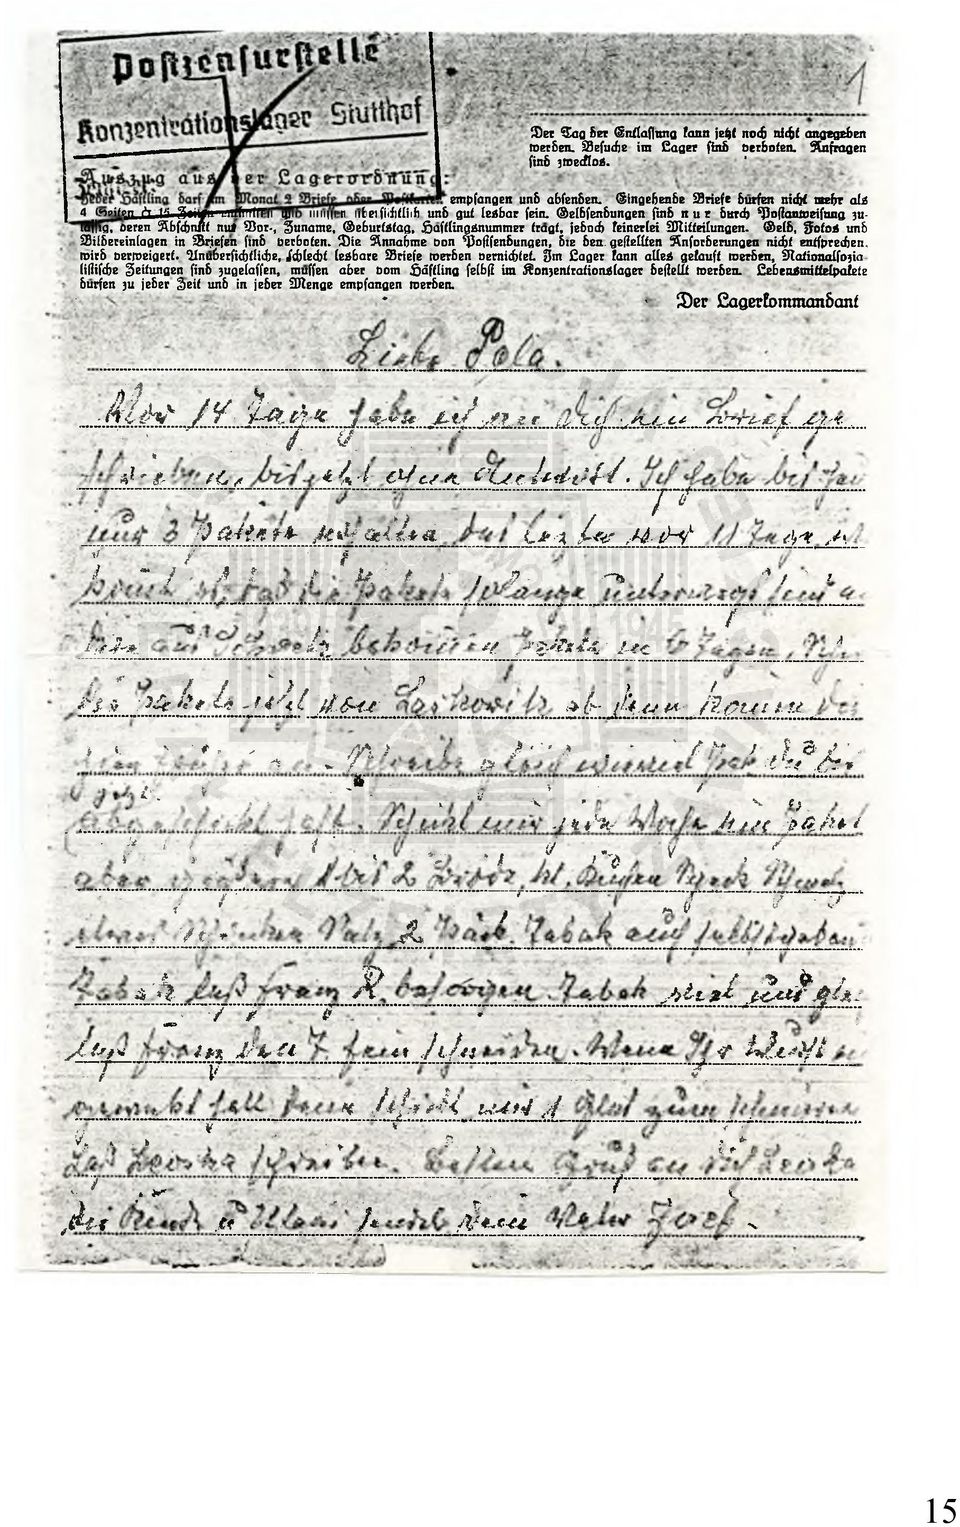 Postzensurstelle
1
Konzentrationslager Stutthof
Der Tag der Entlassung kann jetzt noch nicht angegeben
werden. Besuche im Lager sind verboten. Anfragen
sind zwecklos.
Auszug aus der Lagerordnung:
Jeder Häftling darf im Monat 2 Briefe oder Postkarten empfangen und absenden. Eingehende Briefe dürfen nicht mehr als
4 Seiten à 15 Zeilen enthalten und müssen übersichtlich und gut lesbar sein. Geldsendungen sind nur durch Postanweisung zu-
lässig, deren Abschnitt nur Vor-, Zuname, Geburtstag, Häftlingsnummer trägt, jedoch keinerlei Mitteilungen. Geld, Fotos und
Bildereinlagen in Briefen sind verboten. Die Annahme von Postsendungen, die den gestellten Anforderungen nicht entsprechen,
wird verweigert. Unübersichtliche, schlecht lesbare Briefe werden vernichtet. Im Lager kann alles gekauft werden, Nationalsozia-
listische Zeitungen sind zugelassen, müssen aber vom Häftling selbst im Konzentrationslager bestellt werden. Lebensmittelpakete
dürfen zu jeder Zeit und in jeder Menge empfangen werden.
Der Lagerkommandant
Liebe Pola.
Vor 14 Tage habe ich an Dich ein Brief ge
schrieben, bis jetzt ohne Antwort. Ich habe bis
nur 3 Pakete erhalten, das lezte vor 11 Tage
die Pakete solange unterwegs sind
aus Schwetz bekommen Pakete in 6 Tagen,
die Pakete jetzt von Laskowitz ab dann komm
an. Schreibe gleich wieviel Pak du bis
jetzt
abgeschickt hast. Schickt mir jede Woche ein Paket
aber 1 bis 2 Brode, kl. Kuchen Speck Schmalz
etwas Schinken Salz 2 Päck. Tabak auch selbstgebau
Tabak laß Franz R. besorgen Tabak viel und
laß Franz den T. fein schneiden. Wenn Ihr
gemacht dann schickt mir 1 Glas zum schmieren
Laß Leoska schreiben. Besten Gruß an Dich Leoska
die Kinder u sendet dein Vater Josef.
15